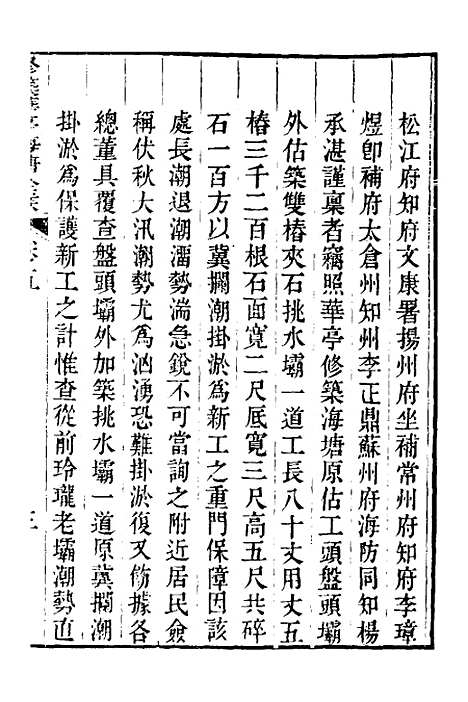 松江府知府文康署揚州府坐補常州府知府李璋
煜卽補府太倉州知州李正鼎蘇州府海防同知楊
承湛謹稟者竊照華亭修築海塘原估工頭盤頭壩
外估築雙樁夾石挑水壩一道工長八十丈用丈五
樁三千二百根石面寬二尺底寬三尺高五尺共碎
石一百方以冀攔潮掛淤爲新工之重門保障因該
處長潮退潮溜勢湍急銳不可當詢之附近居民僉
稱伏秋大汛潮勢尤爲洶湧恐難掛淤復又飭據各
總董具覆查盤頭壩外加築挑水壩一道原冀攔潮
掛淤爲保護新工之計惟查從前玲瓏老壩潮勢直
卷五
三